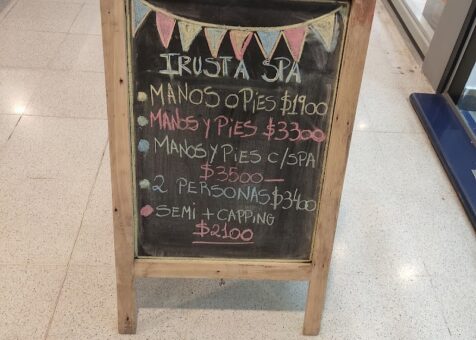 IRUSTA SPA
MANOS O PIES $1900
MANOS Y PIES $3300
MANOS Y PIES C/SPA
$3500
2 PERSONAS $3400
SEMI + CAPPING
$2100